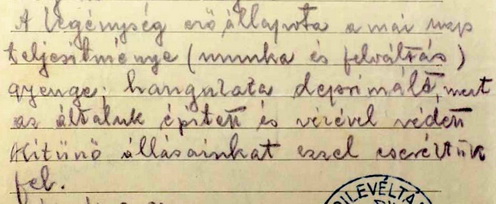 A legénység erő állapota a mai nap
teljesitménye (munka és felváltás)
gyenge; hangulata deprimált, mert
az általuk épitett és vérével védett
kitünő állásainkat ezzel cseréltük
fel.
DILEVÉLTÁR